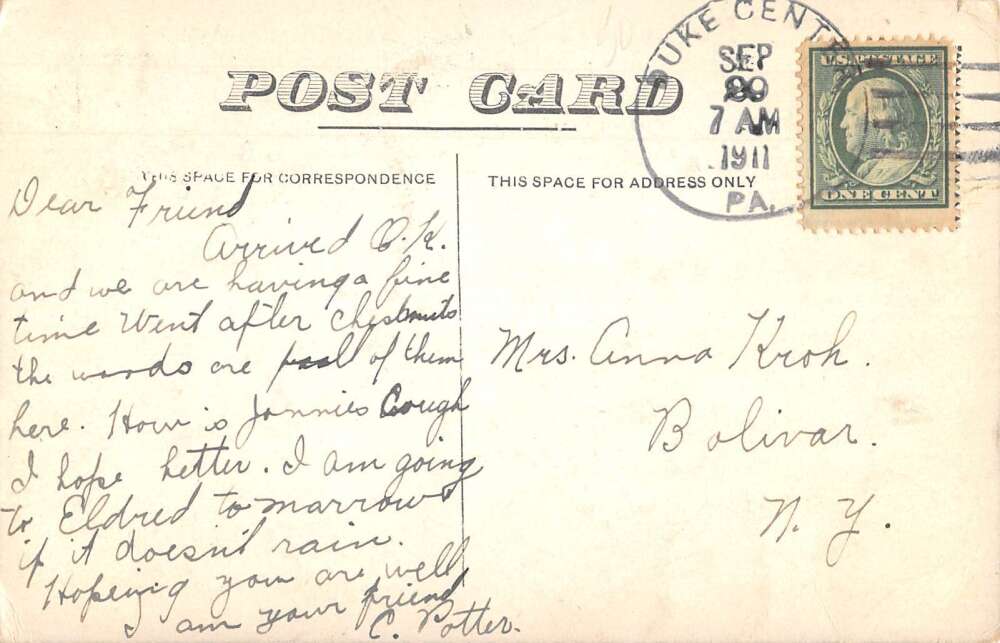 POST CARD
DUKE CENTER
SEP
29
7 AM
1911
PA.
U.S. POSTAGE
ONE CENT
THIS SPACE FOR CORRESPONDENCE
THIS SPACE FOR ADDRESS ONLY
Dear Friend
Arrived O.K.
and we are having a fine
time Went after chesbnuts
the woods are full of them
here. How is Jonnies Cough
I hope better. I am going
to Eldred to marrow
if it doesnt rain.
Hopeing you are well
I am your friend
C. Potter.
Mrs. Anna Kroh.
Bolivar.
N. Y.